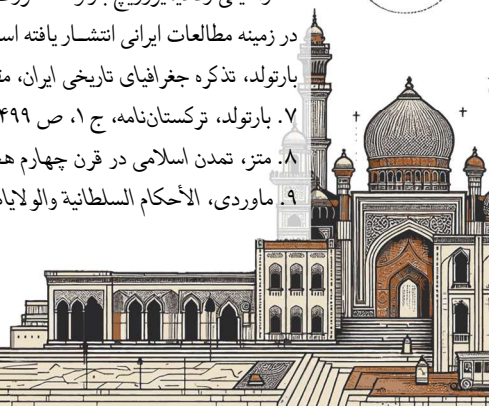 در زمینه مطالعات ایرانی انتشار یافته اس
بارتولد، تذکره جغرافیای تاریخی ایران، مق
۷. بارتولد، ترکستان‌نامه، ج ۱، ص ۴۹۹
۸. متز، تمدن اسلامی در قرن چهارم هج
۹. ماوردی، الأحکام السلطانیة والولایا